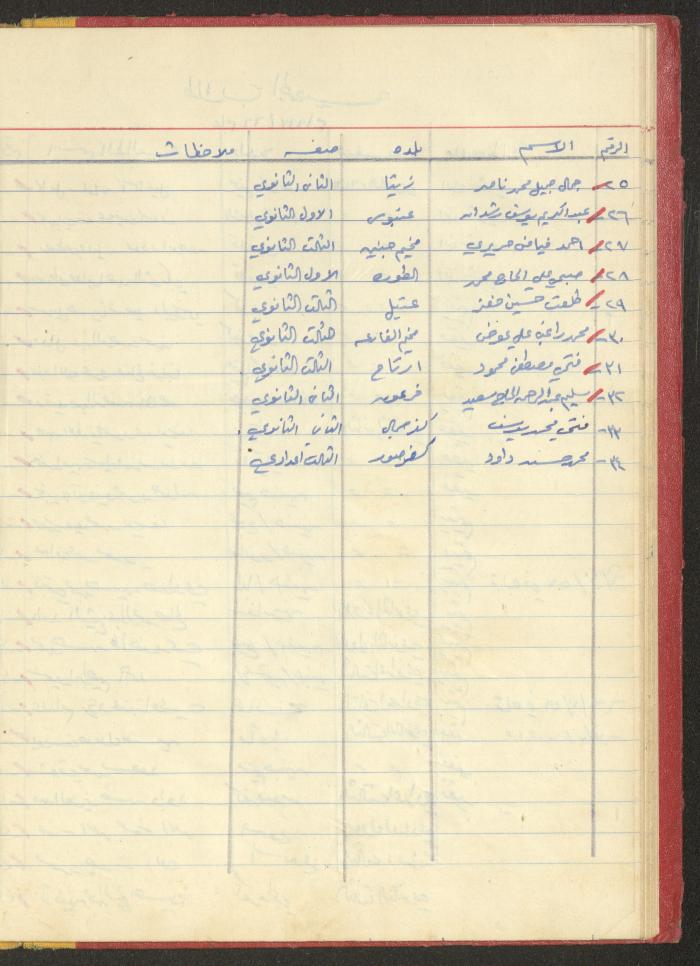 الرقم الاسم بلده صفه ملاحظات
٢٥ جمال جميل محمد ناصر زيتا الثاني الثانوي
٢٦ عبد الكريم يوسف رشدان عنبوس الاول الثانوي
٢٧ احمد فياض حريري مخيم جنين الثالث الثانوي
٢٨ صبحي علي الحاج محمد الطوره الاول الثانوي
٢٩ طلعت حسين عتيل الثالث الثانوي
٣٠ محمد راغب علي عوض مخيم الفارعه الثالث الثانوي
٣١ فتحي مصطفى محمود ارتاح الثالث الثانوي
٣٢ سليم عبد الرحمن الحاج سعيد فرعون الثاني الثانوي
٣٣ فتحي محمد يوسف كفر جمال الثاني الثانوي
٣٤ محمد حسن داود كفر صور الثالث اعدادي